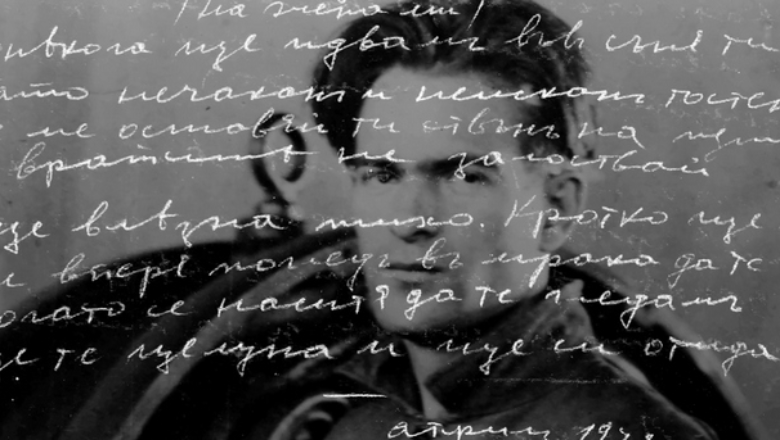 (На жена ми)
нѣкога ще идвамъ във съня ти
ато нечаканъ и неисканъ госте
не ме оставяй ти отвънъ на пъ
вратитѣ не залоствай
ще влѣзна тихо. Кротко ще
и вперя погледъ въ мрака да те
огато се наситя да те гледамъ
ще те целуна и ще си отида
априлъ 19